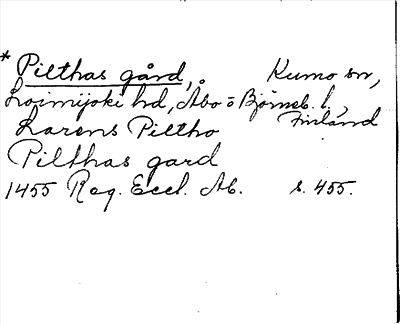 * Pilthas gård, Kumo sn,
Loimijoki hd, Åbo o Björneb. l.,
Finland
Larens Piltho
Pilthas gard
1455 Reg. Eccl. Ab. s. 455.